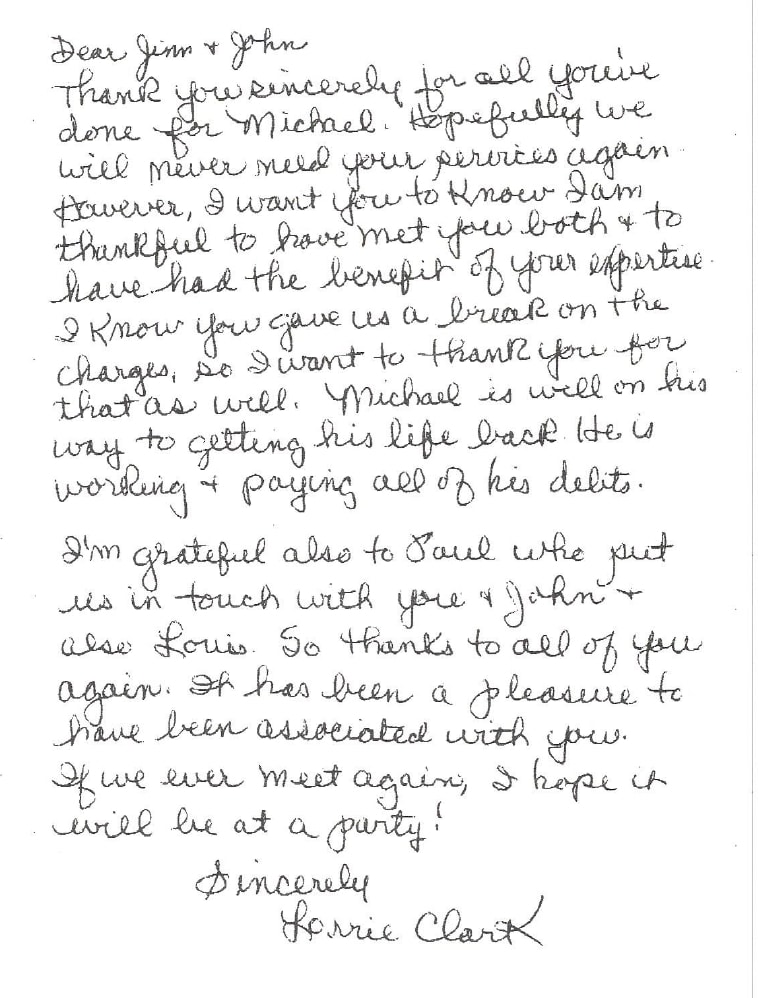 Dear Jinn & John
Thank you sincerely for all you've
done for Michael. Hopefully we
will never need your services again
However, I want you to know I am
thankful to have met you both & to
have had the benefit of your expertise.
I know you gave us a break on the
charges, so I want to thank you for
that as well. Michael is well on his
way to getting his life back. He is
working & paying all of his debts.
I'm grateful also to Paul who put
us in touch with you & John &
also Louis. So thanks to all of you
again. It has been a pleasure to
have been associated with you.
If we ever meet again, I hope it
will be at a party!
Sincerely
Lorrie Clark